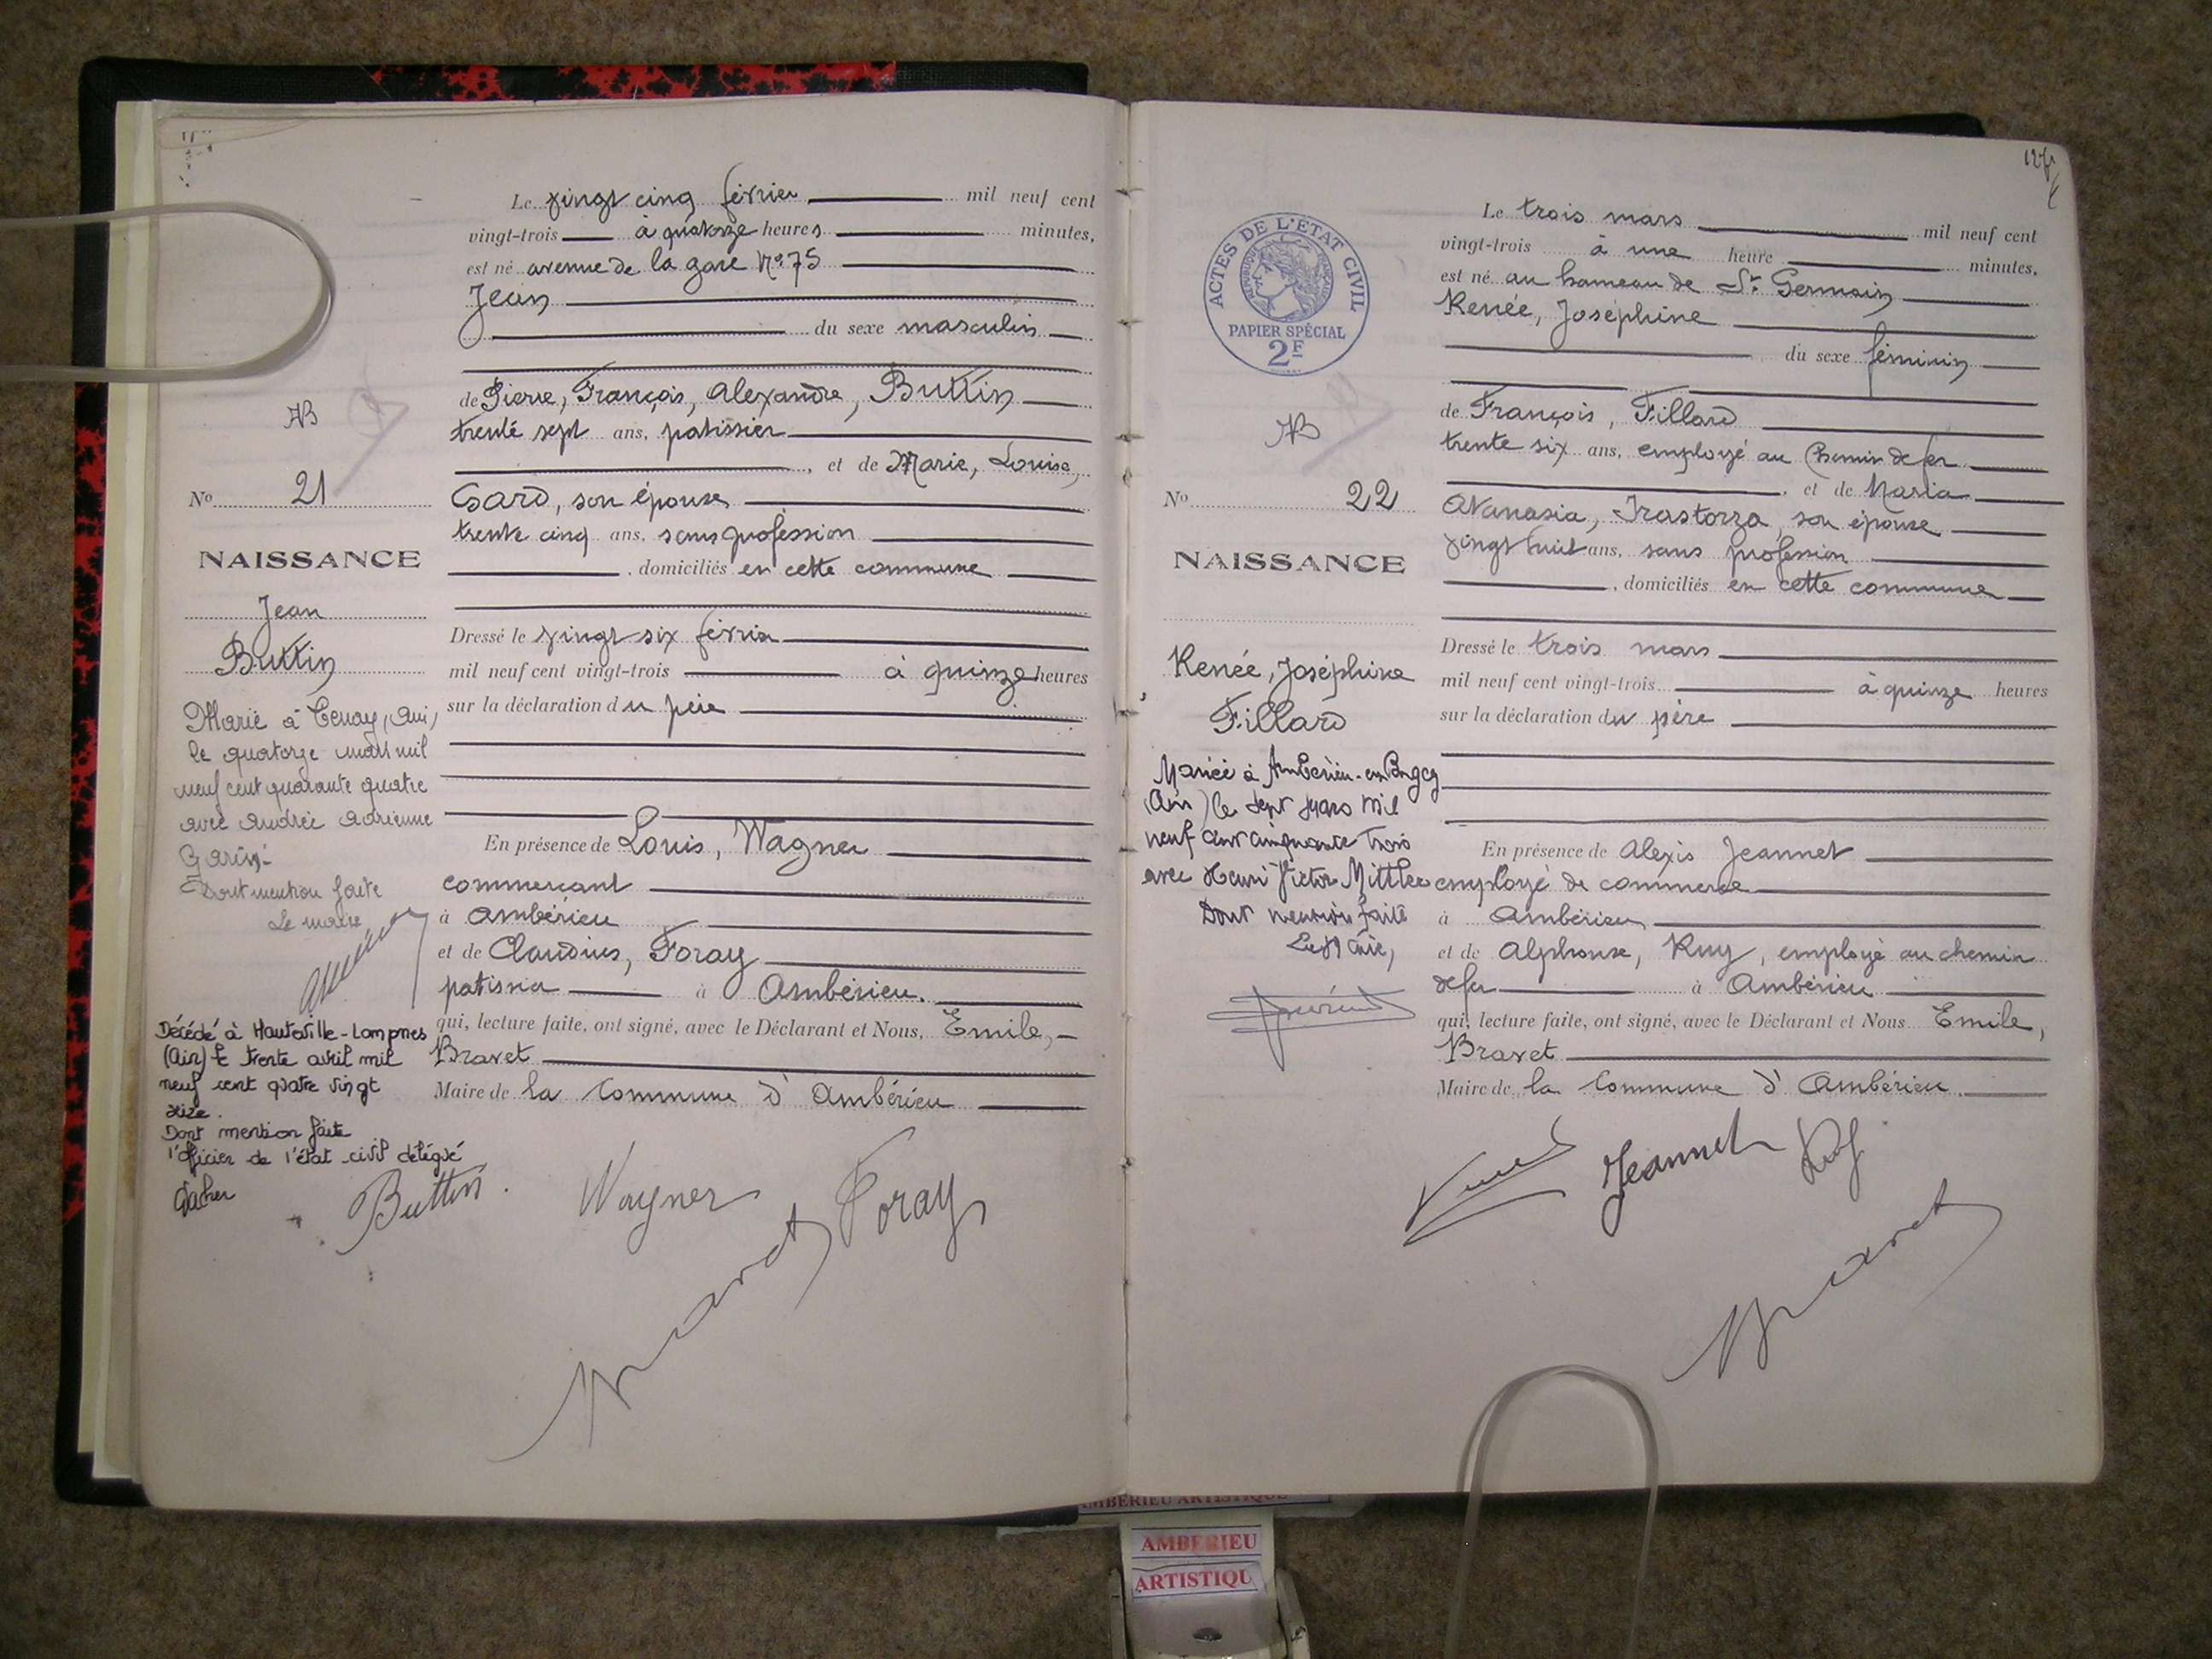 Le vingt cinq février mil neuf cent
vingt-trois à quatorze heures minutes,
est né avenue de la gare No 75
Jean
du sexe masculin
de Pierre, François, Alexandre, Buttin
trente sept ans, patissier
, et de Marie, Louise,
Gard, son épouse
trente cinq ans, sans profession
, domiciliés en cette commune
Dressé le vingt six février
mil neuf cent vingt-trois à quinze heures
sur la déclaration du père
En présence de Louis, Wagner
commerçant
à Ambérieu
et de Claudius, Foray
patissier à Ambérieu.
qui, lecture faite, ont signé, avec le Déclarant et Nous, Emile,
Bravet
Maire de la Commune d'Ambérieu
No 21
NAISSANCE
Jean
Buttin
Marié à Tenay, (Ain)
le quatorze mars mil
neuf cent quarante quatre
avec Andrée Adrienne
Garin
Dont mention faite
Le maire
Décédé à Hauteville-Lompnes
(Ain) le trente avril mil
neuf cent quatre vingt
seize.
Dont mention faite
l'officier de l'état civil délégué
Buttin.
Wagner
Foray
Bravet
ACTES DE L'ETAT CIVIL
REPUBLIQUE FRANÇAISE
PAPIER SPÉCIAL
2F
Le trois mars mil neuf cent
vingt-trois à une heure minutes,
est né au hameau de St Germain
Renée, Joséphine
du sexe féminin
de François, Fillard
trente six ans, employé au Chemin de fer
, et de Maria
Atanasia, Irastorza, son épouse
vingt huit ans, sans profession
, domiciliés en cette commune
Dressé le trois mars
mil neuf cent vingt-trois à quinze heures
sur la déclaration du père
En présence de Alexis Jeannet
employé de commerce
à Ambérieu
et de Alphonse, Ruy, employé au chemin
de fer à Ambérieu
qui, lecture faite, ont signé, avec le Déclarant et Nous Emile,
Bravet
Maire de la Commune d'Ambérieu.
No 22
NAISSANCE
Renée, Joséphine
Fillard
Mariée à Ambérieu-en-Bugey
(Ain) le sept mars mil
neuf cent cinquante trois
avec Henri Victor Mittler
Dont mention faite
Le Maire,
Jeannet
Bravet
AMBERIEU ARTISTIQUE
AMBERIEU
ARTISTIQU